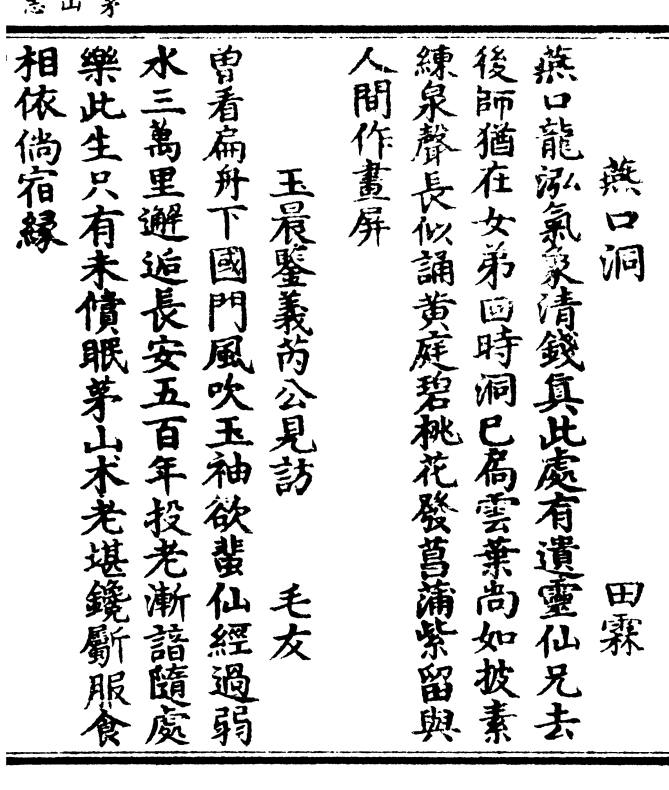 燕口洞　田霖
燕口龍泓氣象清錢眞此處有遺靈仙兄去
後師猶在女弟回時洞已扃雲葉尚如披素
練泉聲長似誦黃庭碧桃花發菖蒲紫留與
人間作畫屏
玉晨鑒義芮公見訪　毛友
曽看扁舟下國門風吹玉袖欲蜚仙經過弱
水三萬里邂逅長安五百年投老漸諳隨處
樂此生只有未償眠茅山术老堪鑱斸服食
相依倘宿緣